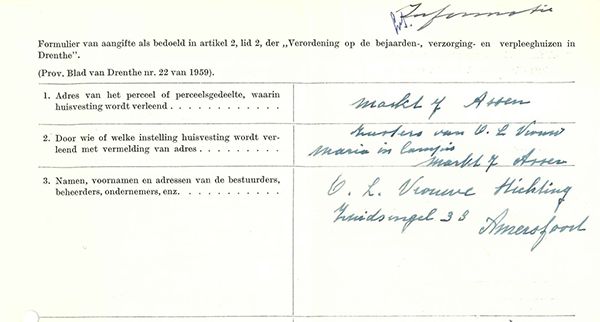 Informatie
Formulier van aangifte als bedoeld in artikel 2, lid 2, der „Verordening op de bejaarden-, verzorging- en verpleeghuizen in
Drenthe".
(Prov. Blad van Drenthe nr. 22 van 1959).
1. Adres van het perceel of perceelsgedeelte, waarin
huisvesting wordt verleend . . . . . . . . . . . .
Markt 7 Assen
2. Door wie of welke instelling huisvesting wordt ver-
leend met vermelding van adres . . . . . . . . .
Zusters van O. L Vrouw
Maria in Campis
Markt 7 Assen
3. Namen, voornamen en adressen van de bestuurders,
beheerders, ondernemers, enz. . . . . . . . . . .
O. L. Vrouwe Stichting
Zuidsingel 38
Amersfoort